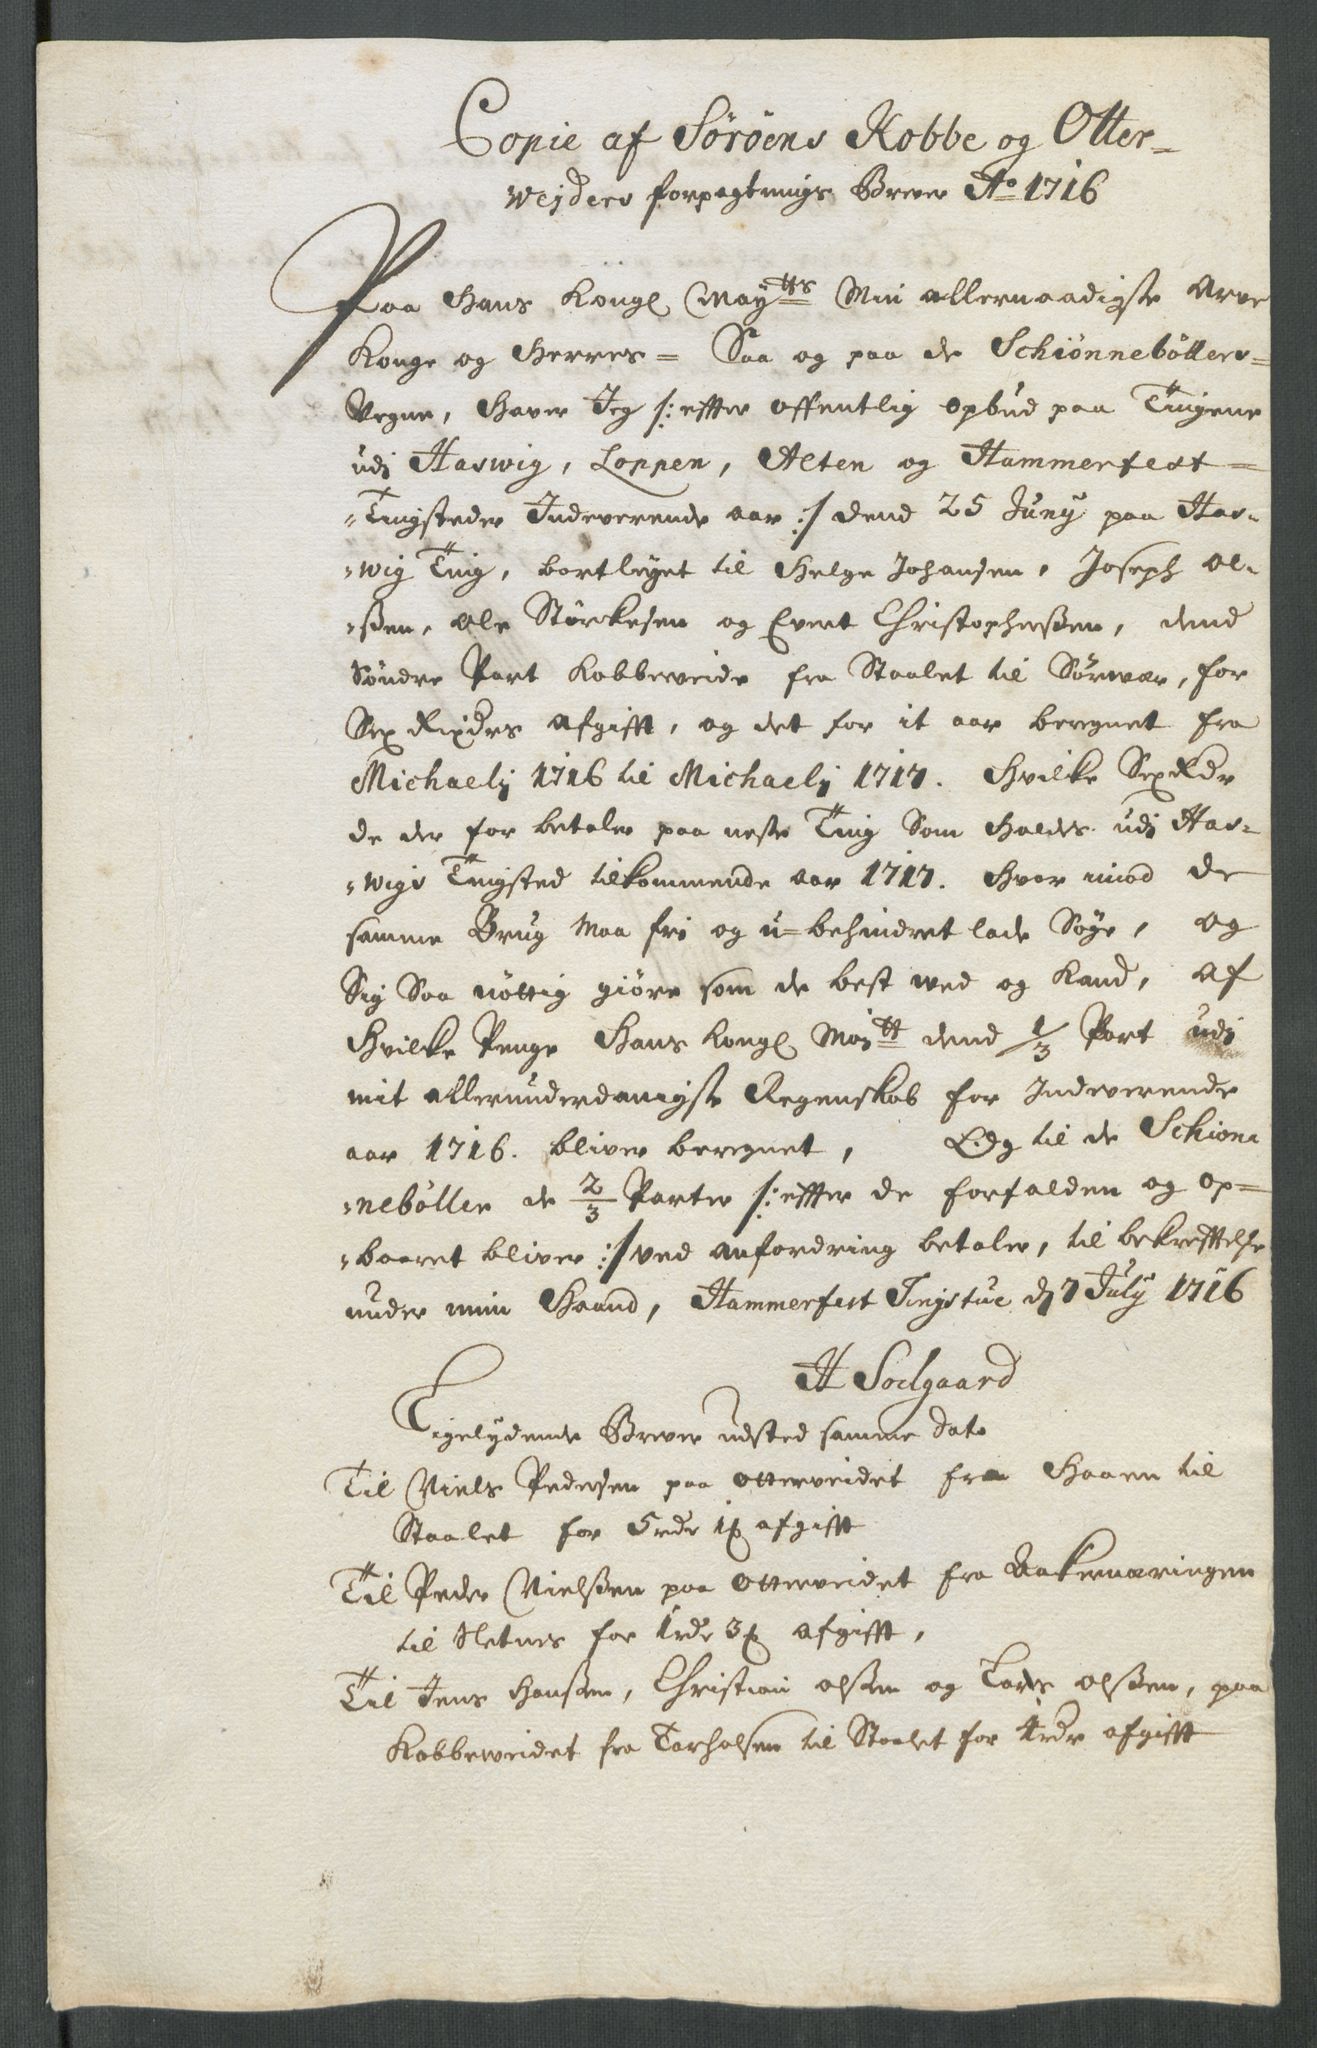 Copie af Söröens Kobbe og Otter-
Weÿders forpagtnings Brewe Ao 1716
Paa Hans Kongl Maÿtts Min allernaadigste Arve
Konge og Herres = Saa og paa de Schiönneböllers-
Vegne, Haver Jeg /: effter offentlig opbud paa Tingene
udj Haswig, Loppen, Alten og Hammerfest=
Tingsteder Indeverende aar :/ dend 25 Junÿ paa Has-
wig Ting, bortleyet til Helge Johansen, Joseph Ol-
ssen, Ole Störckesen og Evert Christophersen, dend
Söndre Part Kobbeveide fra Staalet til Sörwær, for
Sex Rixdrs afgifft, og det for it aar beregnet fra
Michaelj 1716 til Michaelj 1717. Hvilke Sex Rdr
de der for betaler paa neste Ting Som Holdes udj Has-
wigs Tingsted tilkommende aar 1717. Hvor imod de
samme Brug Maa fri og u-behindret lade Söge, og
Sig Saa nöttig giöre som de best ved og Kand, af
Hvilke Penge Hans Kongl Maÿtt dend 1/3 Part udj
mit allerunderdanigste Regenskab for Indeverende
aar 1716. bliver beregnet, Og til de Schiön-
nebölle de 2/3 Parter /: effter de forfalden og op-
baaret bliver :/ ved anfordring betaler, til bekrefftelse
under min Haand, Hammerfest Tingstue d 7 Julÿ 1716
H Soelgaard
Ligelÿdende Brewe udsted samme dato
Til Niels Pedersen paa Otterveidet fra Haaen til
Staalet for 5 rdr 1 ß afgifft
Til Peder Nielssen paa Otterveidet fra Aakernæringen
til Sletnes for 1 rdr 3 ß afgifft,
Til Jens Hanssen, Christian olssen og Lars olssen, paa
Kobbeweidet fra Tarhalsen til Staalet for 1 rdr afgifft